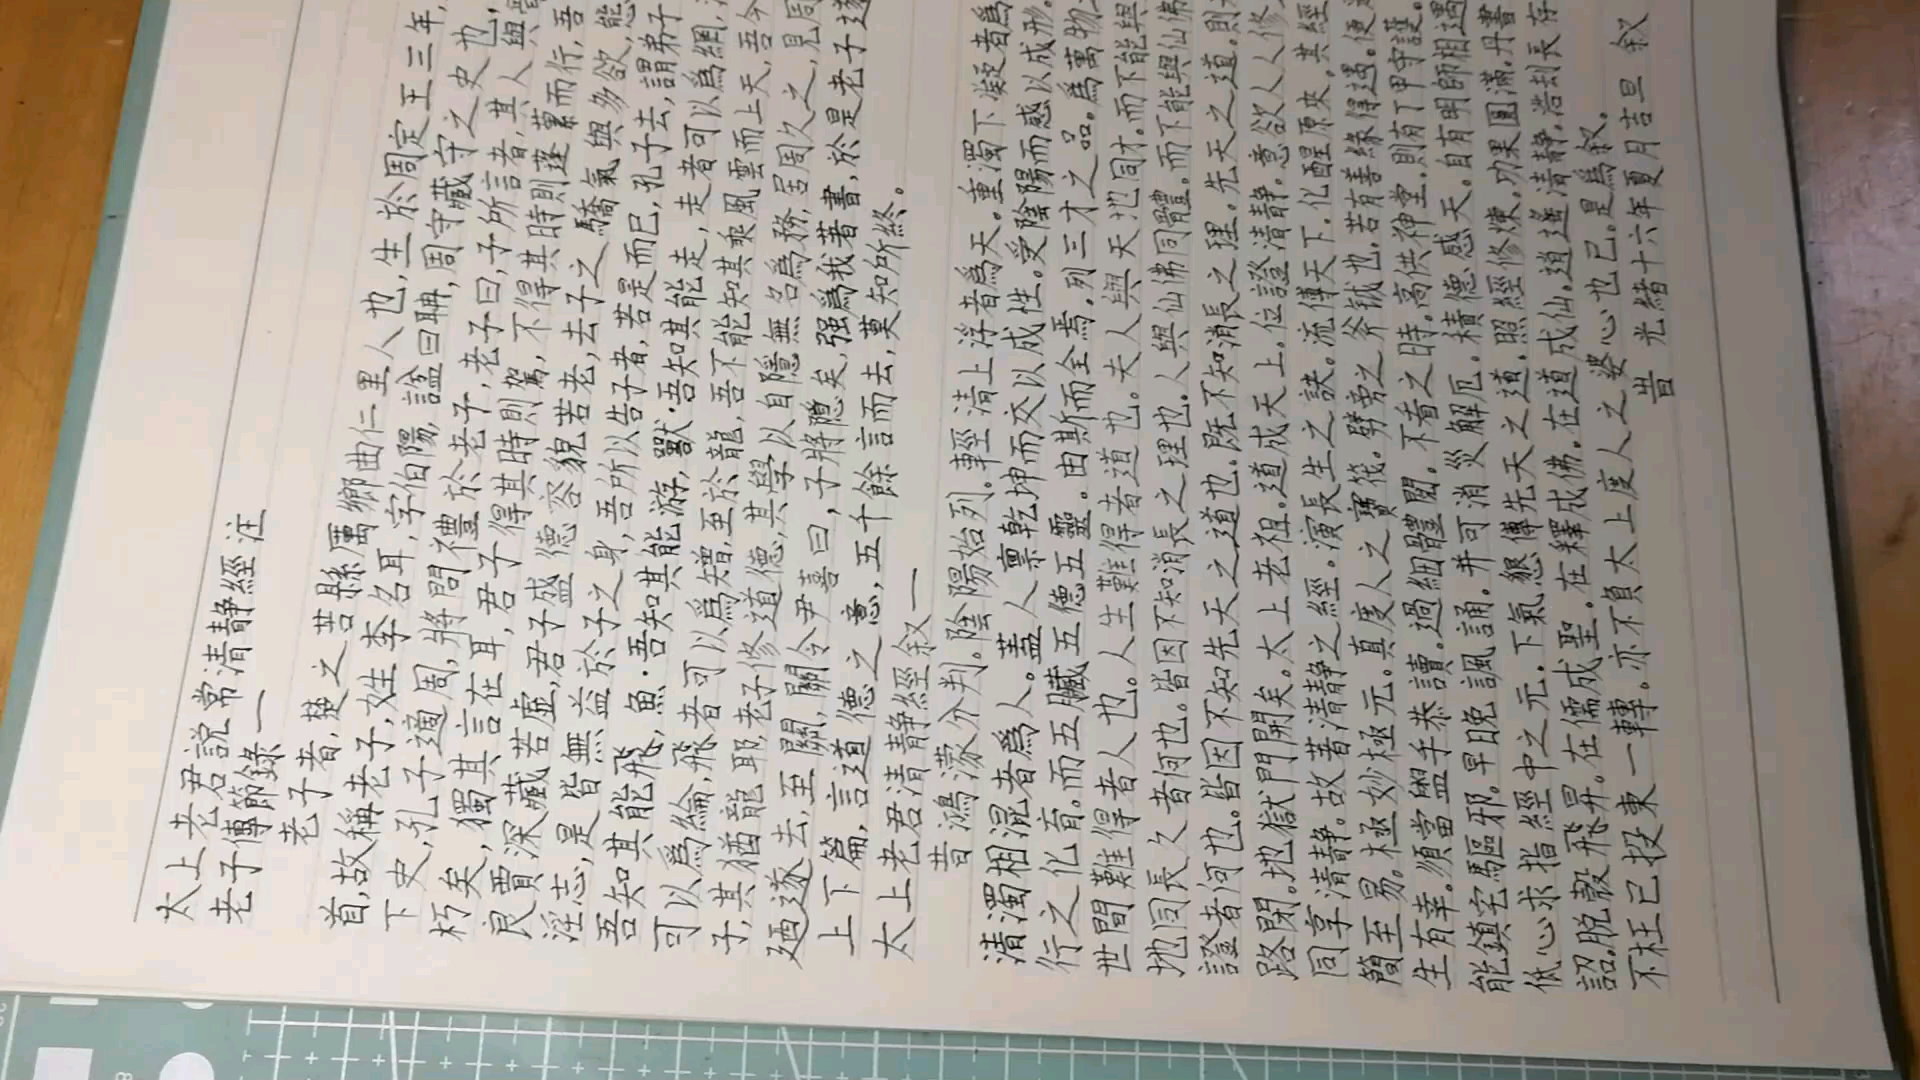 太上老君説常清静經注
老子傳節錄一
老子者,楚之苦縣厲鄉曲仁里人也,生於周定王三年,
首,故稱老子,姓李名耳,字伯陽,謚曰聃,周守藏守之史也,
下史,孔子適周,將問禮於老子,老子曰,子所言者,其人與
朽矣,獨其言在耳,君子得其時則駕,不得其時則蓬蔂而行,吾
良賈深藏若虛,君子盛德容貌若老,去子之驕氣與多欲,態
淫志,是皆無益於子之身,吾所以告子者,若是而已,孔子去,謂弟子
吾知其能飛,魚·吾知其能游,獸·吾知其能走,走者可以爲網,
可以爲綸,飛者可以爲矰,至於龍,吾不能知其乘風雲而上天,吾今
子,其猶龍耶,老子修道德,其學以自隱無名爲務,居周久之,見周
廼遂去,至關,關令尹喜曰,子將隱矣,强爲我著書,於是老子遂
上下篇,言道德之意,五千餘言而去,莫知所終。
太上老君清静經叙一
昔鴻濛分判。陰陽始列。輕清上浮者爲天。重濁下凝者爲
清濁相混者爲人。蓋人禀乾坤而交以成性。受陰陽而感以成形。
行之化育。而五臟五德五靈。由斯而全焉。列三才之品。爲萬物
世間難得者人也。人生難得者道也。夫人與天地同才。而下能與
地同長久者何也。皆因不知消長之理也。人與仙佛同體。而下能與仙佛
證者何也。皆因不知先天之道也。既不知消長之理。先天之道。則
路閉。地獄門開矣。太上老祖。道成天上。位證清静。意欲人人修
同享清静。故著清静之經。演長生之訣。流傳天下。化醒原來。其經
簡至易。極妙極元。真度人之寶筏。劈旁之斧鉞也。若有善緣得遇。便
生有幸。須當盥手恭讀。過細體閲。不看之時。高供神堂。則有丁甲守護。
能鎮宅驅邪。早晚諷誦。并可消災解厄。積德感天。自有明師相遇
低心求指經中之元。下氣懇傳先天之道。照經修煉。功果圓滿。丹書
詔。脱殼飛昇。在儒成聖。在釋成佛。在道成仙。逍遙清静。浩刦長存
不枉已投東一轉。亦不負太上度人之婆心也已。是爲叙。
旹光緒十六年夏月吉旦叙